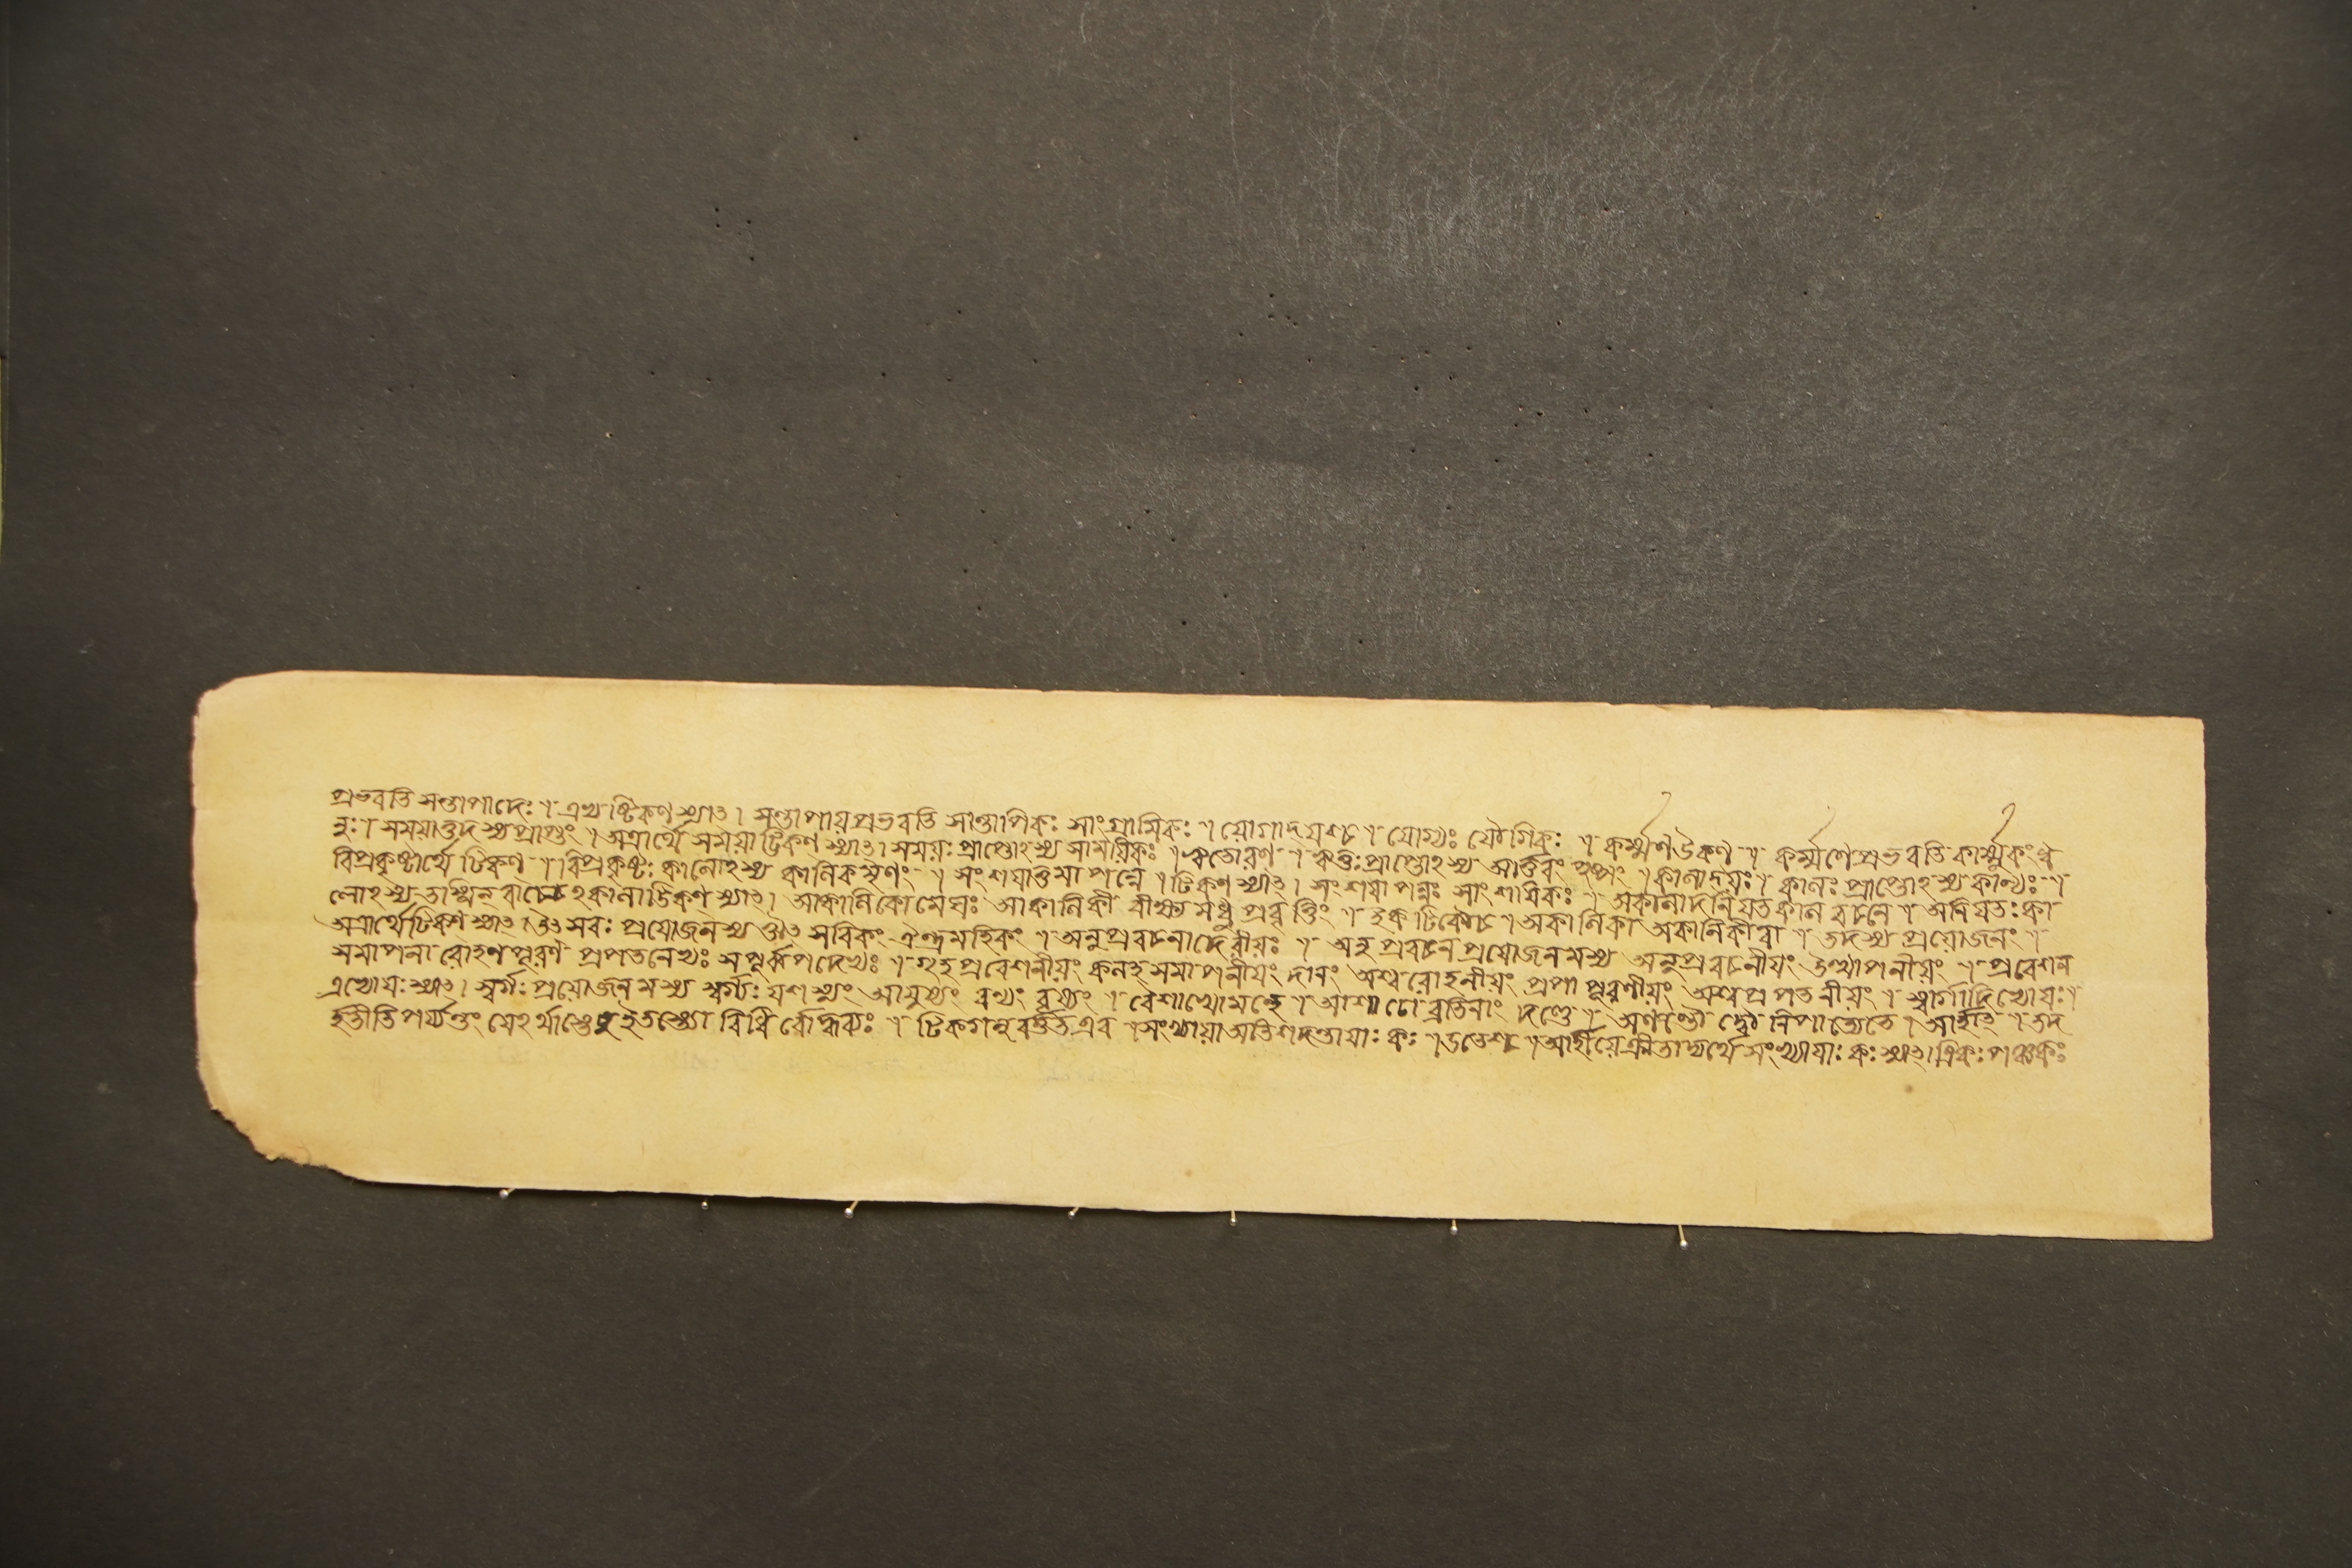 প্রভবতি সন্তাপাদেঃ । এভ্যষ্টিকণ স্যাৎ । সন্তাপায় প্রভবতি সান্তাপিকঃ সাংগ্রামিকঃ । যোগাদ্যণচ । যোগ্যঃ যৌগিকঃ । কর্ম্মণউকণ । কর্ম্মণেপ্রভবতি কার্ম্মুকং ধ
নুঃ । সময়াত্তদস্যপ্রাপ্তং । অত্রার্থে সময়াট্টিকণ স্যাৎ । সময়ঃ প্রাপ্তোঽস্য সাময়িকঃ । ঋতোরণ । ঋতুঃ প্রাপ্তোঽস্য আর্ত্তবং পুষ্পং । কালাদ্যঃ । কালঃ প্রাপ্তোঽস্য কাল্যঃ ।
বিপ্রকৃষ্টার্থে টিকণ । বিপ্রকৃষ্টঃ কালোঽস্য কালিকমৃণং । সংশয়াত্তমাপন্নে । টিকণ স্যাৎ । সংশয়াপন্নঃ সাংশয়িকঃ । অকালাদনিয়তকাল বচনে । অনিয়তঃ কা
লোঽস্য তস্মিন বাচ্যেঽকালাট্টিকণ স্যাৎ । আকালিকোমেঘঃ আকালিকী বীক্ষ্য মধু প্রবৃত্তিং । ইকটিকৌচ । অকালিকা অকালিকীবা । তদস্য প্রয়োজনং ।
অত্রার্থেটিকণ স্যাৎ । উৎসবঃ প্রয়োজনস্য ঔৎসবিকং ঐন্দ্রমহিকং । অনুপ্রবচনাদেরীয়ঃ । অনুপ্রবচন প্রয়োজনমস্য অনুপ্রবচনীয়ং উত্থাপনীয়ং । প্রবেশন
সমাপনা রোহণপূরণ প্রপতনেভ্যঃ সপূর্ব্বপদেভ্যঃ । গৃহপ্রবেশনীয়ং কলহসমাপনীয়ং দানং অশ্বরোহনীয়ং প্রপাপূরণীয়ং অশ্বপ্রপতনীয়ং । স্বর্গাদিভ্যোযঃ ।
এভ্যোযঃ স্যাৎ । স্বর্গঃ প্রয়োজনমস্য স্বর্গ্যঃ যশস্যং আয়ুষ্যং বল্যং বৃষ্যং । বৈশাখোমন্থে । আশাঢো ব্রতিনাং দণ্ডে । অণন্তৌ দ্বৌ নিপাত্যেতে । আর্হাৎ । তদ
হতীতিপর্য্যন্তং যেঽর্থাস্তেষুইতস্ত্যো বিধির্বোদ্ধব্যঃ । টিকণনুবর্ত্তত এব । সংখ্যায়া অতিশদন্তায়াঃ কঃ । ডতেশ্চ । আর্হীয়েক্রীতাদ্যর্থে সংখ্যায়াঃ কঃ স্যাৎ । ত্রিকঃ পঞ্চকঃ